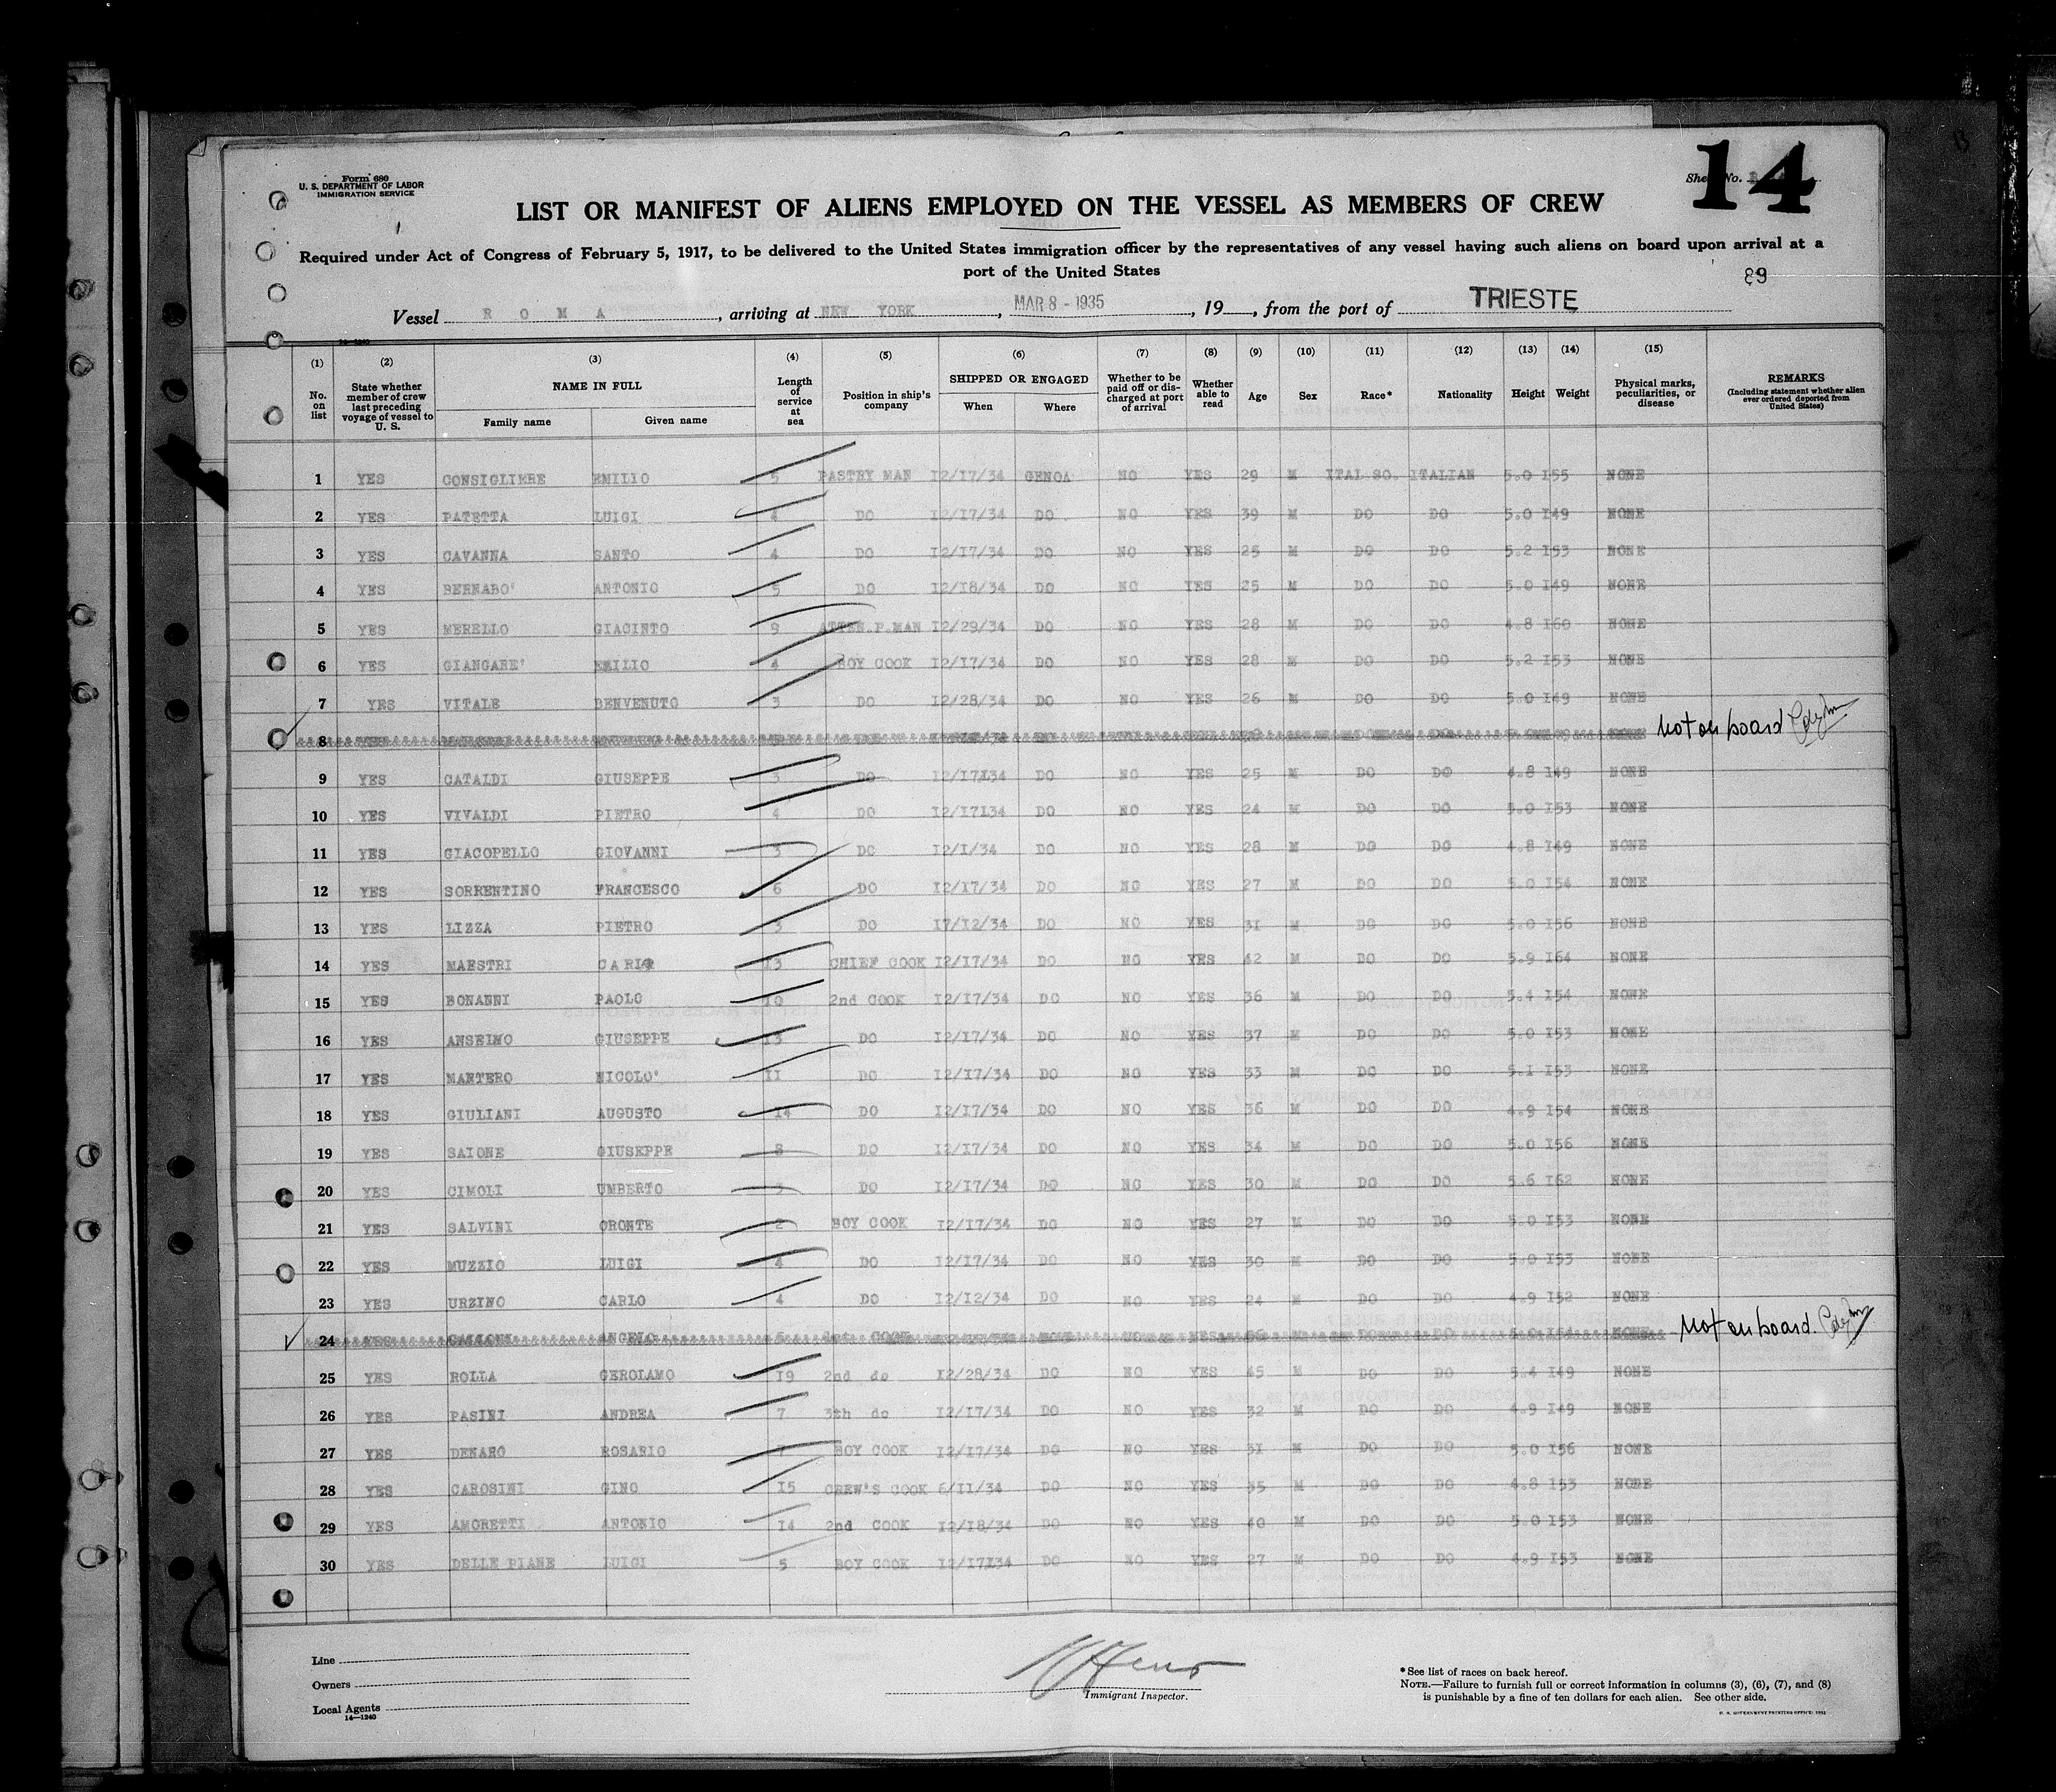 Form 680
U. S. DEPARTMENT OF LABOR
IMMIGRATION SERVICE
Sheet No.
14
LIST OR MANIFEST OF ALIENS EMPLOYED ON THE VESSEL AS MEMBERS OF CREW
Required under Act of Congress of February 5, 1917, to be delivered to the United States immigration officer by the representatives of any vessel having such aliens on board upon arrival at a
port of the United States
89
Vessel R O M A, arriving at NEW YORK, MAR 8 - 1935, 19, from the port of TRIESTE
14—1240
(1) (2) (3) (4) (5) (6) (7) (8) (9) (10) (11) (12) (13) (14) (15)
No. on list
State whether member of crew last preceding voyage of vessel to U. S.
NAME IN FULL
Family name
Given name
Length of service at sea
Position in ship's company
SHIPPED OR ENGAGED
When
Where
Whether to be paid off or discharged at port of arrival
Whether able to read
Age
Sex
Race*
Nationality
Height
Weight
Physical marks, peculiarities, or disease
REMARKS
(Including statement whether alien ever ordered deported from United States)
1 YES CONSIGLIERE EMILIO 5 PASTRY MAN 12/17/34 GENOA NO YES 29 M ITAL SO. ITALIAN 5.0 155 NONE
2 YES PATETTA LUIGI 4 DO 12/17/34 DO NO YES 39 M DO DO 5.0 149 NONE
3 YES CAVANNA SANTO 4 DO 12/17/34 DO NO YES 25 M DO DO 5.2 153 NONE
4 YES BERNABO' ANTONIO 5 DO 12/18/34 DO NO YES 25 M DO DO 5.0 149 NONE
5 YES MERELLO GIACINTO 9 ATTEN.P.MAN 12/29/34 DO NO YES 28 M DO DO 4.8 160 NONE
6 YES GIANGARE' EMILIO 4 BOY COOK 12/17/34 DO NO YES 28 M DO DO 5.2 153 NONE
7 YES VITALE BENVENUTO 3 DO 12/28/34 DO NO YES 26 M DO DO 5.0 149 NONE
8 not on board
9 YES CATALDI GIUSEPPE 3 DO 12/17134 DO NO YES 25 M DO DO 4.8 149 NONE
10 YES VIVALDI PIETRO 4 DO 12/17134 DO NO YES 24 M DO DO 5.0 153 NONE
11 YES GIACOPELLO GIOVANNI 3 DO 12/1/34 DO NO YES 28 M DO DO 4.8 149 NONE
12 YES SORRENTINO FRANCESCO 6 DO 12/17/34 DO NO YES 27 M DO DO 5.0 154 NONE
13 YES LIZZA PIETRO 3 DO 17/12/34 DO NO YES 31 M DO DO 5.0 156 NONE
14 YES MAESTRI CARLO 13 CHIEF COOK 12/17/34 DO NO YES 42 M DO DO 5.9 164 NONE
15 YES BONANNI PAOLO 10 2nd COOK 12/17/34 DO NO YES 36 M DO DO 5.4 154 NONE
16 YES ANSELMO GIUSEPPE 13 DO 12/17/34 DO NO YES 37 M DO DO 5.0 153 NONE
17 YES MARTERO NICOLO' 11 DO 12/17/34 DO NO YES 33 M DO DO 5.1 153 NONE
18 YES GIULIANI AUGUSTO 14 DO 12/17/34 DO NO YES 36 M DO DO 4.9 154 NONE
19 YES SAIONE GIUSEPPE 8 DO 12/17/34 DO NO YES 34 M DO DO 5.0 156 NONE
20 YES CIMOLI UMBERTO 3 DO 12/17/34 DO NO YES 30 M DO DO 5.6 162 NONE
21 YES SALVINI ORONTE 2 BOY COOK 12/17/34 DO NO YES 27 M DO DO 5.0 153 NONE
22 YES MUZZIO LUIGI 4 DO 12/17/34 DO NO YES 30 M DO DO 5.0 153 NONE
23 YES URZINO CARLO 4 DO 12/12/34 DO NO YES 24 M DO DO 4.9 152 NONE
24 YES ANGELO COOK NONE not on board.
25 YES ROLLA GEROLAMO 19 2nd do 12/28/34 DO NO YES 45 M DO DO 5.4 149 NONE
26 YES PASINI ANDREA 7 3th do 12/17/34 DO NO YES 32 M DO DO 4.9 149 NONE
27 YES DENARO ROSARIO 7 BOY COOK 12/17/34 DO NO YES 31 M DO DO 5.0 156 NONE
28 YES CAROSINI GINO 15 CREW'S COOK 6/11/34 DO NO YES 35 M DO DO 4.8 153 NONE
29 YES AMORETTI ANTONIO 14 2nd COOK 12/18/34 DO NO YES 40 M DO DO 5.0 153 NONE
30 YES DELLE PIANE LUIGI 5 BOY COOK 12/17134 DO NO YES 27 M DO DO 4.9 153 NONE
Line
Owners
Local Agents
14—1240
Immigrant Inspector.
*See list of races on back hereof.
NOTE.—Failure to furnish full or correct information in columns (3), (6), (7), and (8)
is punishable by a fine of ten dollars for each alien. See other side.
U. S. GOVERNMENT PRINTING OFFICE: 1932